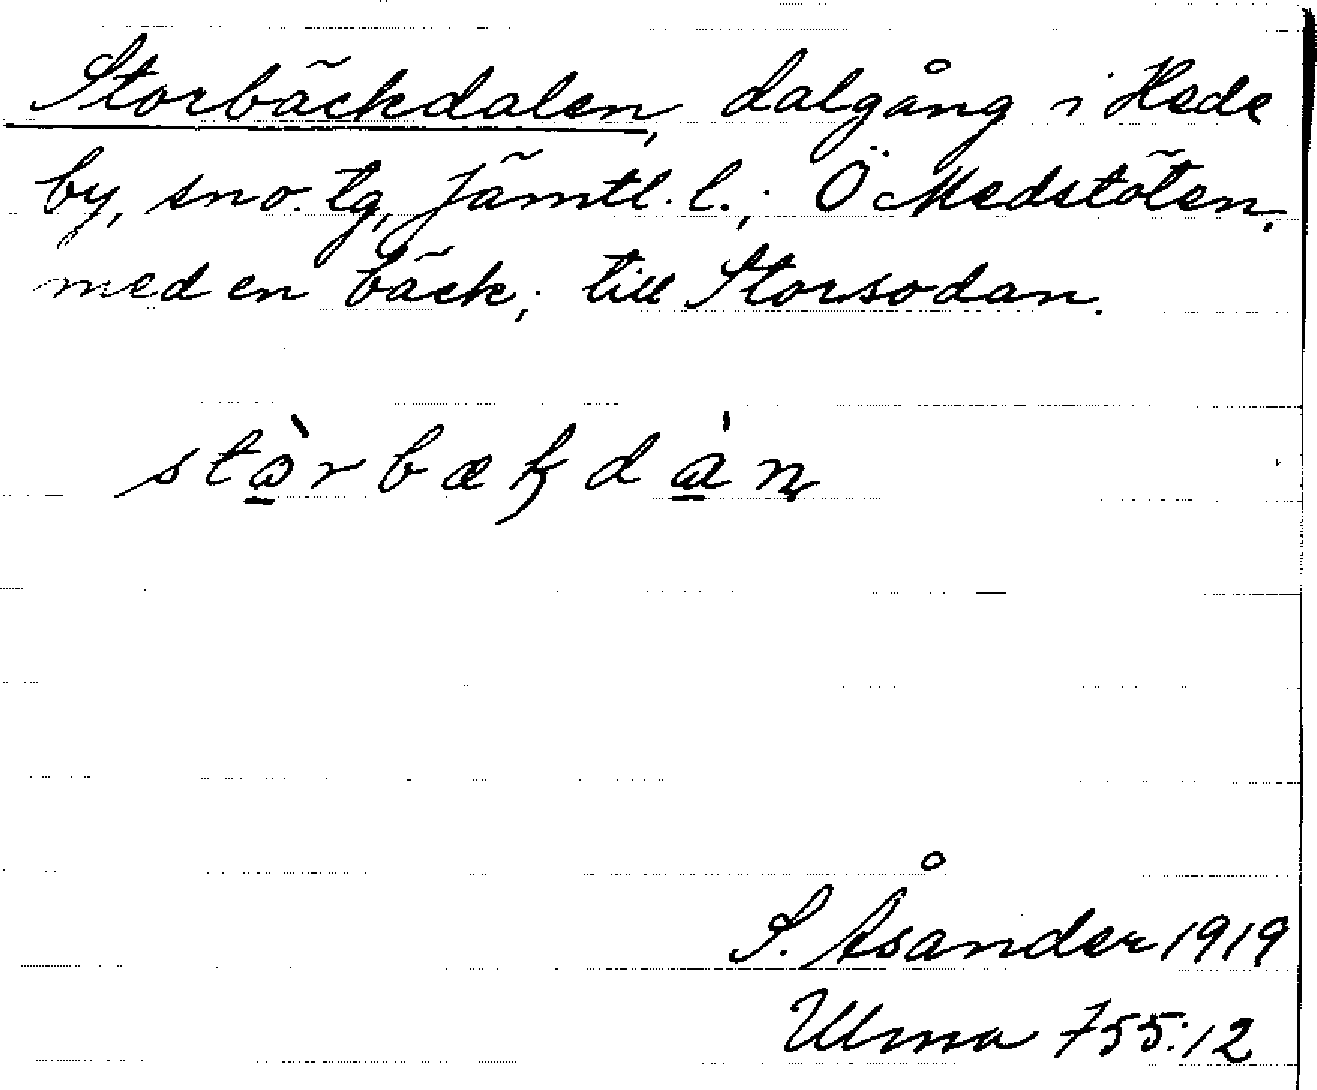 Storbäckdalen, dalgång i Hede
by, sno. tg, Jämtl. l.; Ö Medstöten,
med en bäck; till Storsodan.
stɷ̀rbækdàn
S. Åsander 1919
Ulma 755:12